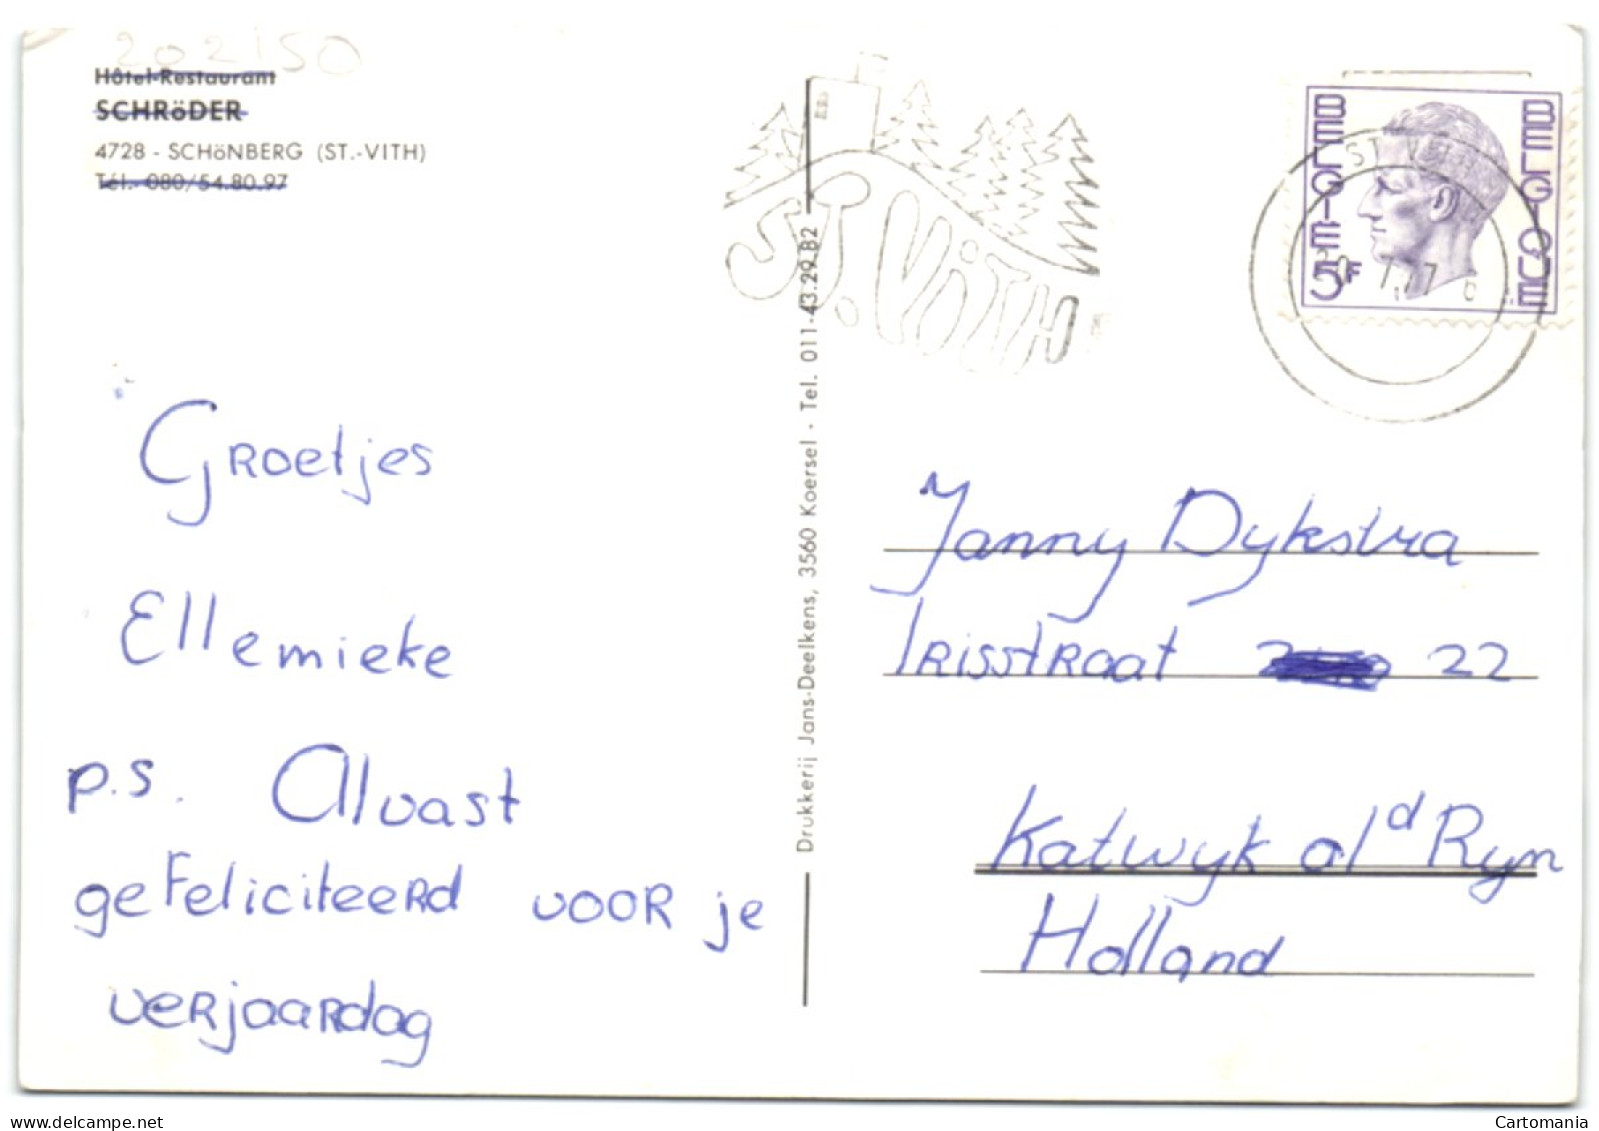 202150
Hôtel-Restaurant
SCHRöDER
4728 - SCHöNBERG (ST.-VITH)
Tél. 080/54.80.97
Groetjes
Ellemieke
p.s. Alvast
gefeliciteerd voor je
verjaardag
Drukkerij Jans-Deelkens, 3560 Koersel - Tel. 011-43.29.82
ST. VITH
BELGIE 5F
BELGIQUE
ST VITH
Janny Dykstra
Irisstraat 22
Katwyk a/d Ryn
Holland
Cartomania